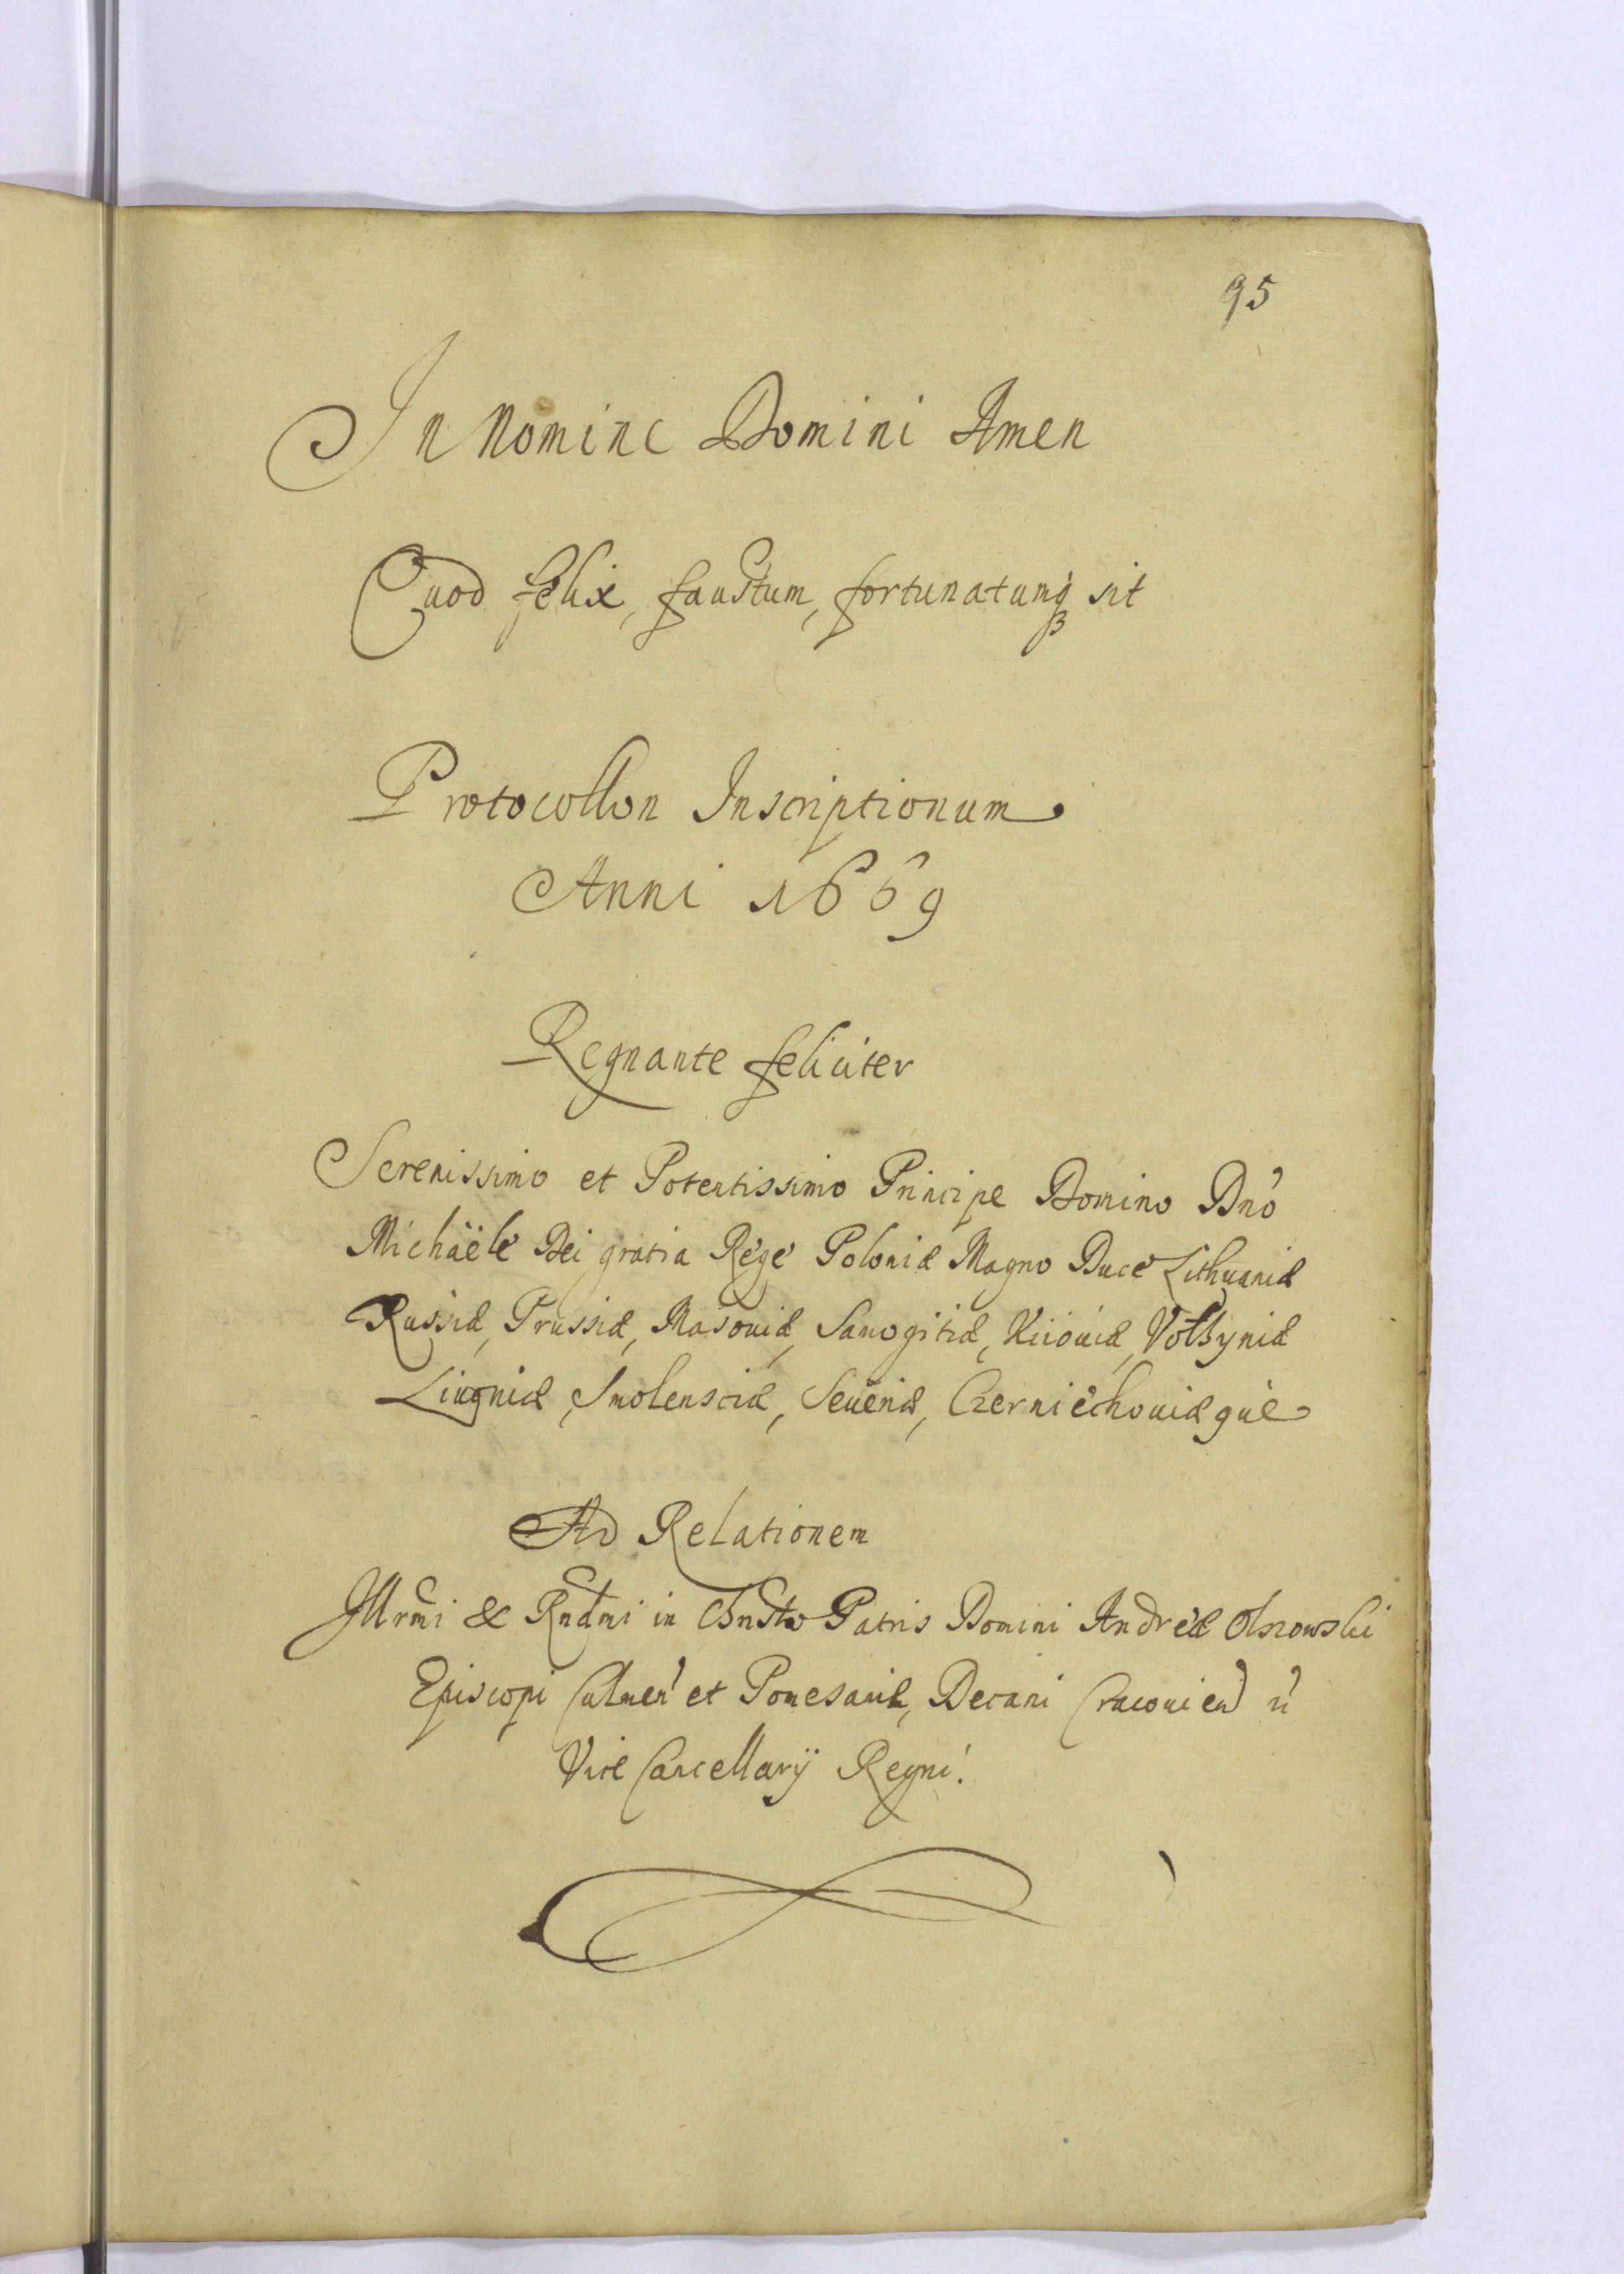 95
In Nomine Domini Amen
Quod felix, faustum, fortunatumq́ꝫ sit
Protocollon Inscriptionum
Anni 1669
Regnante feliciter
Serenissimo et Potentissimo Principe Domino Dnó
Michaële Dei gratia Rege Poloniæ Magno Duce Lithuaniæ
Russiæ, Prussiæ, Masouiæ, Samogitiæ, Kiiouiæ, Volhyniæ
Liuoniæ, Smolensciæ, Seueriæ, Czerniechouiæqùe
Ad Relationem
Illrmi & Rndmi in Christo Patris Domini Andreæ Olszowski
Episcopi Culmen̄ et Pomesaniæ, Decani Cracouien̄
Vice Cancellarÿ Regni.